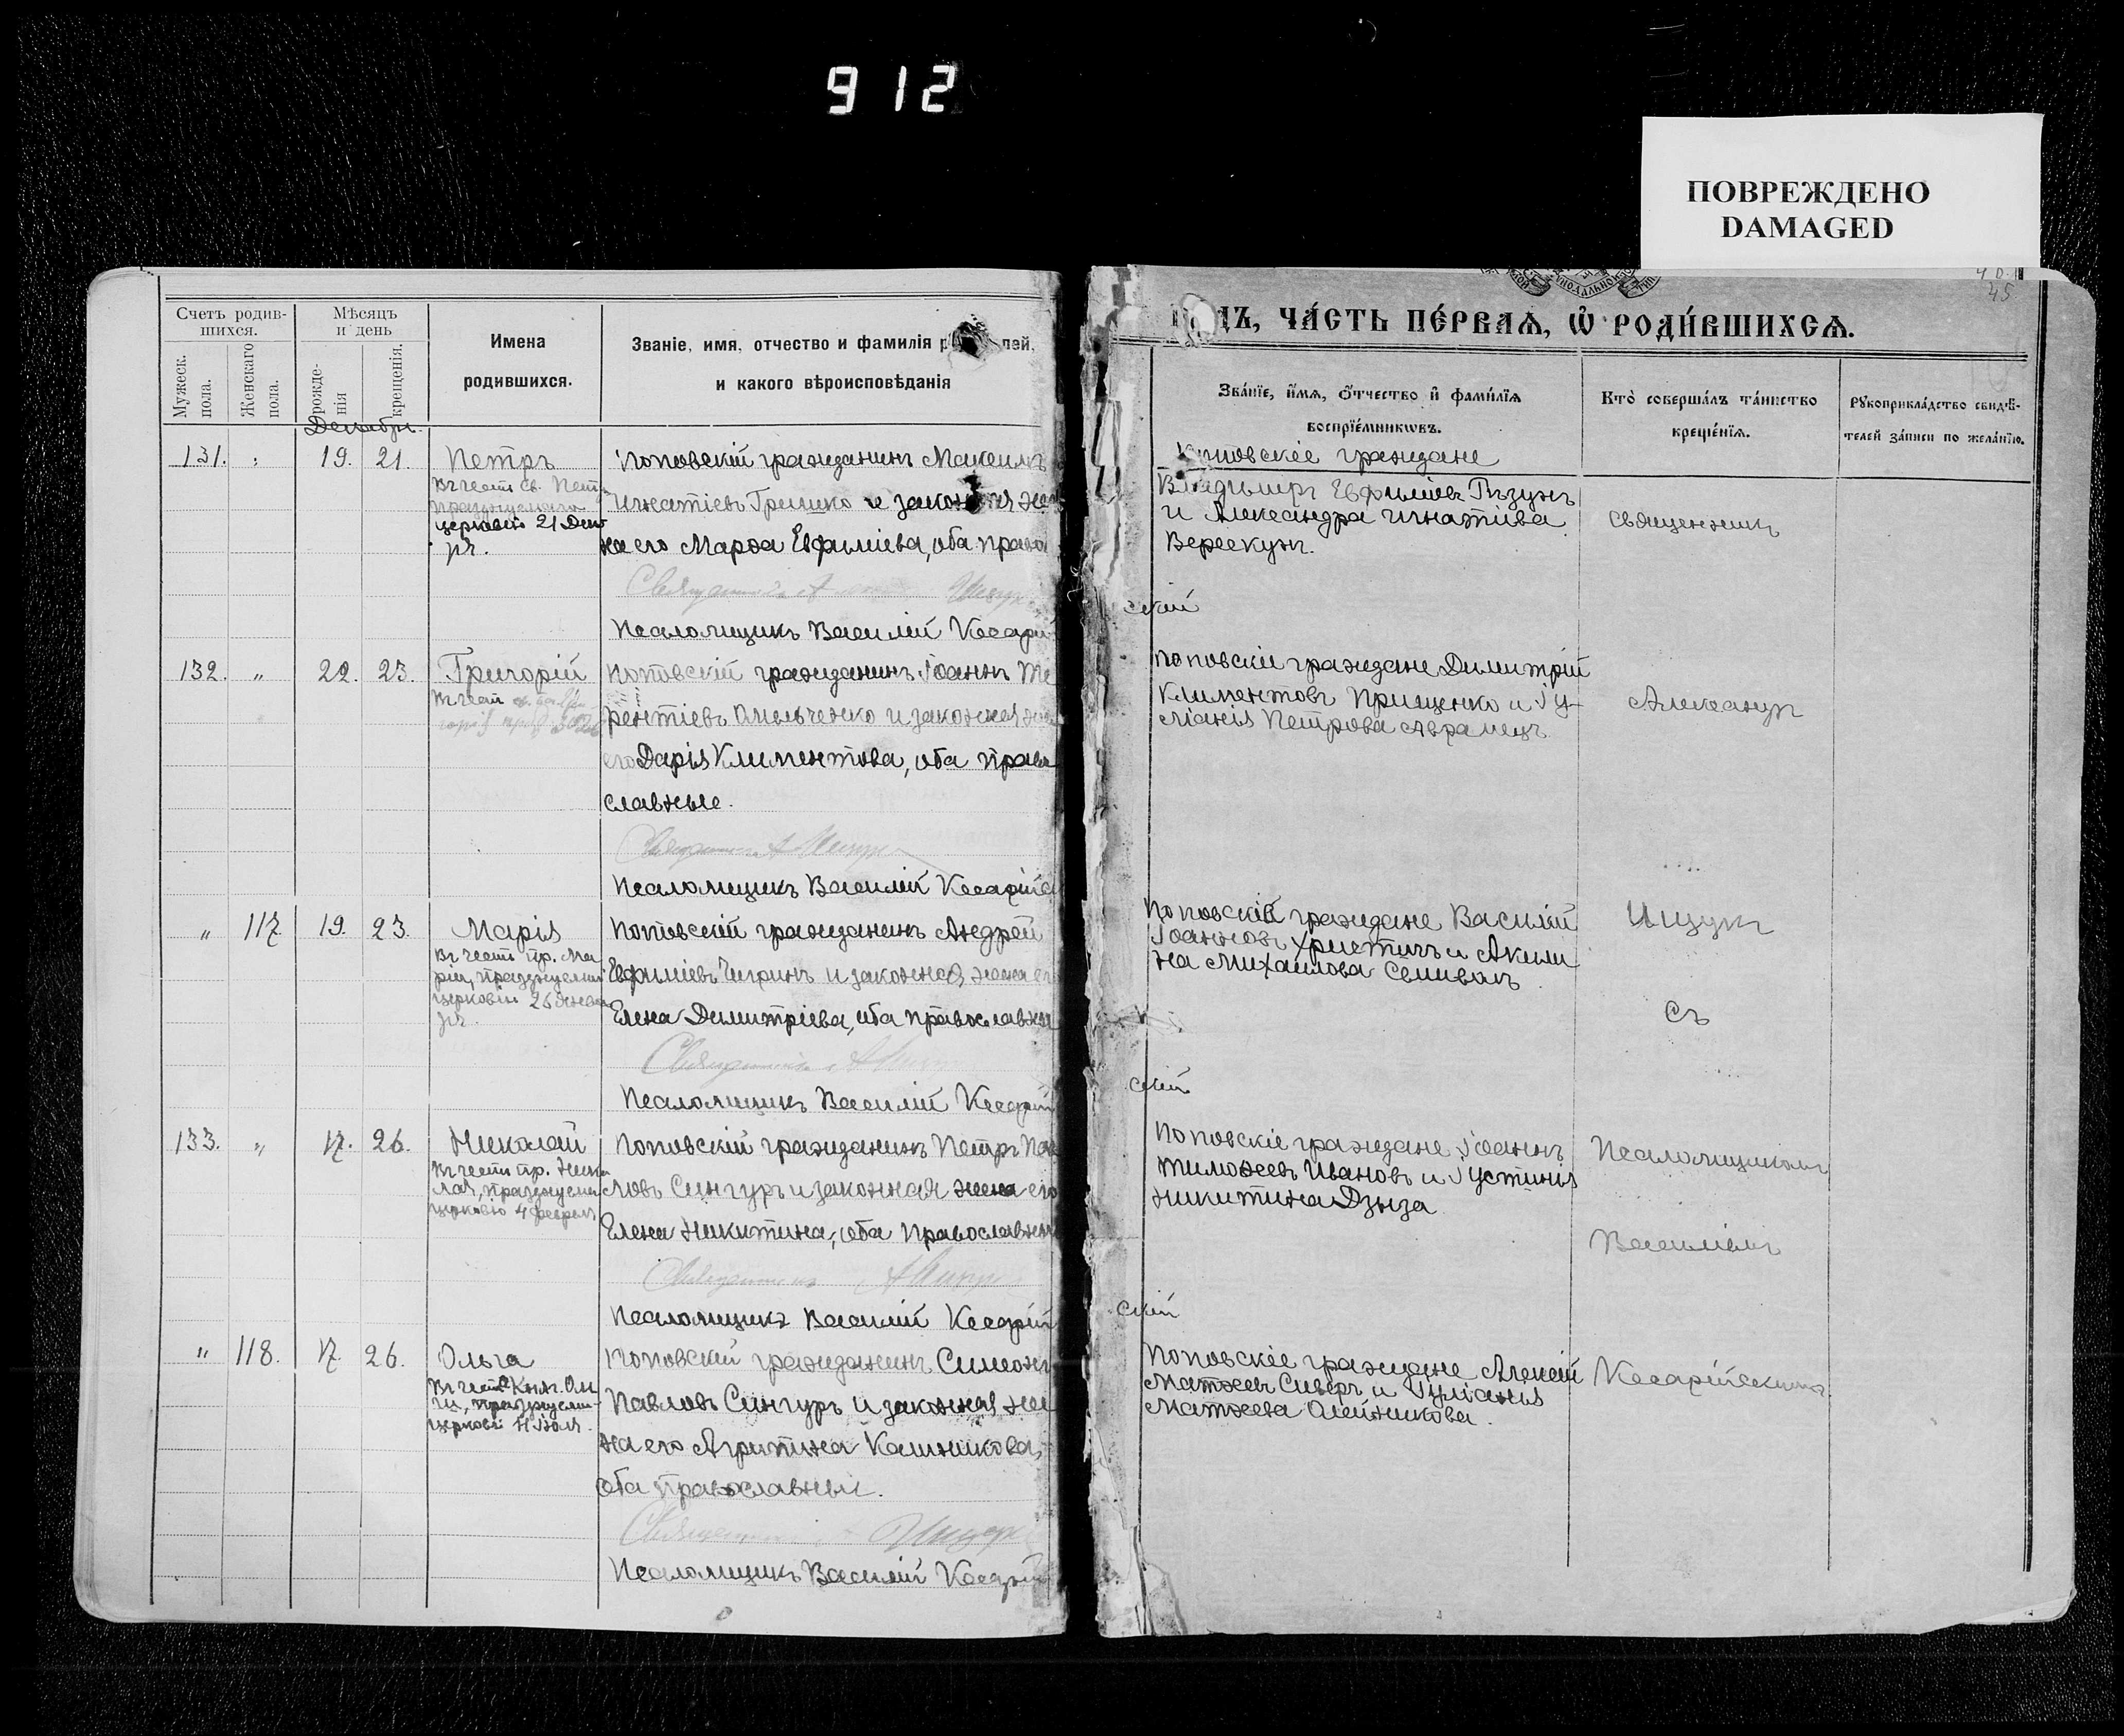 912
ПОВРЕЖДЕНО
DAMAGED
45
Счетъ родив-
шихся.
Мужеск. пола.
Женскаго пола.
Мѣсяцъ
и день
рожде-
нія
крещенія.
Имена
родившихся.
Званіе, имя, отчество и фамилія
и какого вѣроисповѣданія
Декабрь.
131. " 19. 21. Петръ
Въ честь св. Петра
церковію 21 Дек
ря.
Поповскій гражданинъ Максимъ
Игнатіевъ Гришко и законная же
на его Марѳа Евфиміева, оба право
Псаломщикъ Василій Кесарій
132. " 22. 23. Григорій
Въ честь
Поповскій гражданинъ Іоаннъ Те
рентіевъ Омельченко и законная
его Дарія Климентова, оба право
славные.
Псаломщикъ Василій Кесарійс
" 117. 19. 23. Марія
Въ честь пр. Ма
ріи, празднуемой
церковію 26 Янва
ря.
Поповскій гражданинъ Андрей
Евфиміевъ Чигринъ и законная жена его
Елена Димитріева, оба православные
Псаломщикъ Василій Кесарій
133. " 17. 26. Николай
Въ честь пр. Нико
лая, празднуем
церковію 4 февраля
Поповскій гражданинъ Петръ Пав
ловъ Сингуръ и законная жена его
Елена Никитина, оба православные
Псаломщикъ Василій Кесарій
" 118. 17. 26. Ольга
Въ честь Княг. Оль
ги, празднуемой
церковію 11 Іюля
Поповскій гражданинъ Симеонъ
Павловъ Сингуръ и законная же
на его Агрипина Калиникова,
оба православные.
Псаломщикъ Василій Кесарій
ЧА́СТЬ ПЕ́РВАЯ, Ѡ҆ РОДИ́ВШИХСЯ.
Зва́нїе, и҆́мя, ѻ҆́тчество и҆ фами́лїя
воспрїе́мникѡвъ.
Кто̀ соверша́лъ та́инство
креще́нїя.
Рꙋкоприкла́дство свидѣ́-
телей за́писи по жела́нїю.
Поповскіе граждане
Владиміръ Евфиміевъ Пузунъ
и Александра Игнатіева
Верескунъ.
священникъ
скій
Поповскіе граждане Димитрій
Климентовъ Прищенко и Іу-
ліанія Петрова Аврамецъ.
Александръ
Поповскіе граждане Василій
Іоанновъ Христичъ и Акили
на Михаилова Семиволъ
Ищукъ
съ
скій
Поповскіе граждане Іоаннъ
Тимоѳеевъ Ивановъ и Іустинія
Никитина Дзыза
Псаломщикомъ
Василіемъ
скій
Поповскіе граждане Алексій
Матѳеевъ Сиверъ и Іуліанія
Матѳеева Олейникова.
Кесарійскимъ